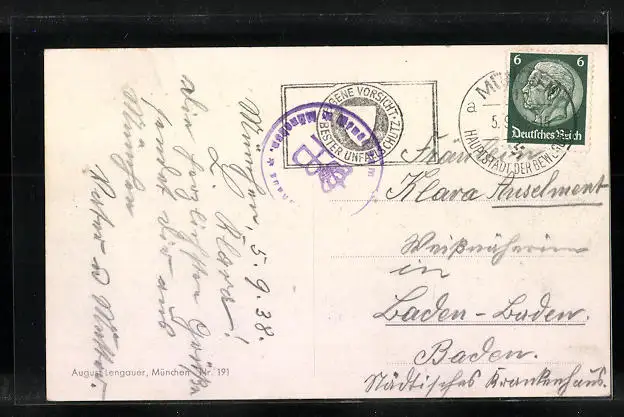 München, 5.9.38.
L. Klara!
Die herzlichsten Grüße
sendet Dir aus
München
Vater u Mutter.
August Lengauer, München Nr. 191
EIGENE VORSICHT
BESTER UNFALLSCHUTZ
MÜNCHEN
a
5.9
HAUPTSTADT DER BEWEGUNG
6 6
Deutsches Reich
Fräulein
Klara Anselment
Weißnäherin
in
Baden-Baden.
Baden.
Städtisches Krankenhaus.